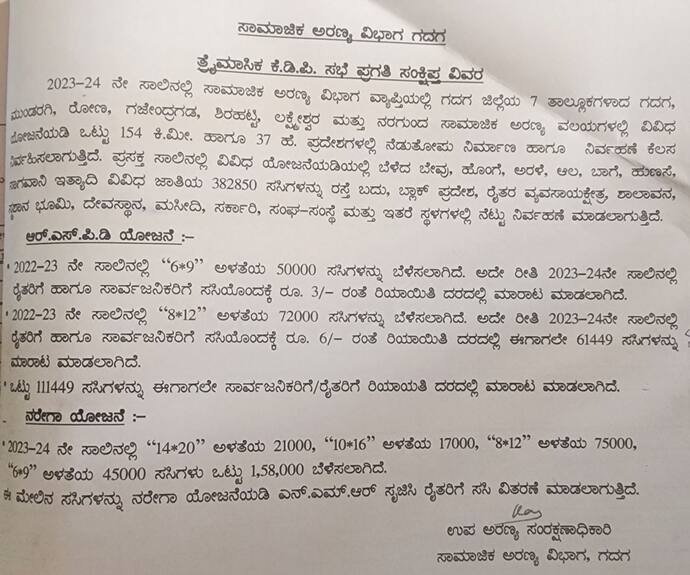 ಸಾಮಾಜಿಕ ಅರಣ್ಯ ವಿಭಾಗ ಗದಗ
ತ್ರೈಮಾಸಿಕ ಕೆ.ಡಿ.ಪಿ. ಸಭೆ ಪ್ರಗತಿ ಸಂಕ್ಷಿಪ್ತ ವಿವರ
2023-24 ನೇ ಸಾಲಿನಲ್ಲಿ ಸಾಮಾಜಿಕ ಅರಣ್ಯ ವಿಭಾಗ ವ್ಯಾಪ್ತಿಯಲ್ಲಿ ಗದಗ ಜಿಲ್ಲೆಯ 7 ತಾಲ್ಲೂಕಗಳಾದ ಗದಗ,
ಮುಂಡರಗಿ, ರೋಣ, ಗಜೇಂದ್ರಗಡ, ಶಿರಹಟ್ಟಿ, ಲಕ್ಷ್ಮೇಶ್ವರ ಮತ್ತು ನರಗುಂದ ಸಾಮಾಜಿಕ ಅರಣ್ಯ ವಲಯಗಳಲ್ಲಿ ವಿವಿಧ
ಯೋಜನೆಯಡಿ ಒಟ್ಟು 154 ಕಿ.ಮೀ. ಹಾಗೂ 37 ಹೆ. ಪ್ರದೇಶಗಳಲ್ಲಿ ನೆಡುತೋಪು ನಿರ್ಮಾಣ ಹಾಗೂ ನಿರ್ವಹಣೆ ಕೆಲಸ
ನಿರ್ವಹಿಸಲಾಗುತ್ತಿದೆ. ಪ್ರಸಕ್ತ ಸಾಲಿನಲ್ಲಿ ವಿವಿಧ ಯೋಜನೆಯಡಿಯಲ್ಲಿ ಬೆಳೆದ ಬೇವು, ಹೊಂಗೆ, ಅರಳೆ, ಆಲ, ಬಾಗೆ, ಹುಣಸೆ,
ಸಾಗವಾನಿ ಇತ್ಯಾದಿ ವಿವಿಧ ಜಾತಿಯ 382850 ಸಸಿಗಳನ್ನು ರಸ್ತೆ ಬದು, ಬ್ಲಾಕ್ ಪ್ರದೇಶ, ರೈತರ ವ್ಯವಸಾಯಕ್ಷೇತ್ರ, ಶಾಲಾವನ,
ಭೂಮಿ, ದೇವಸ್ಥಾನ, ಮಸೀದಿ, ಸರ್ಕಾರಿ, ಸಂಘ-ಸಂಸ್ಥೆ ಮತ್ತು ಇತರೆ ಸ್ಥಳಗಳಲ್ಲಿ ನೆಟ್ಟು ನಿರ್ವಹಣೆ ಮಾಡಲಾಗುತ್ತಿದೆ.
ಆರ್.ಎಸ್.ಪಿ.ಡಿ ಯೋಜನೆ :-
• 2022-23 ನೇ ಸಾಲಿನಲ್ಲಿ "6*9" ಅಳತೆಯ 50000 ಸಸಿಗಳನ್ನು ಬೆಳೆಸಲಾಗಿದೆ. ಅದೇ ರೀತಿ 2023-24ನೇ ಸಾಲಿನಲ್ಲಿ
ರೈತರಿಗೆ ಹಾಗೂ ಸಾರ್ವಜನಿಕರಿಗೆ ಸಸಿಯೊಂದಕ್ಕೆ ರೂ. 3/- ರಂತೆ ರಿಯಾಯಿತಿ ದರದಲ್ಲಿ ಮಾರಾಟ ಮಾಡಲಾಗಿದೆ.
• 2022-23 ನೇ ಸಾಲಿನಲ್ಲಿ "8*12" ಅಳತೆಯ 72000 ಸಸಿಗಳನ್ನು ಬೆಳೆಸಲಾಗಿದೆ. ಅದೇ ರೀತಿ 2023-24ನೇ ಸಾಲಿನಲ್ಲಿ
ರೈತರಿಗೆ ಹಾಗೂ ಸಾರ್ವಜನಿಕರಿಗೆ ಸಸಿಯೊಂದಕ್ಕೆ ರೂ. 6/- ರಂತೆ ರಿಯಾಯಿತಿ ದರದಲ್ಲಿ ಈಗಾಗಲೇ 61449 ಸಸಿಗಳನ್ನು
ಮಾರಾಟ ಮಾಡಲಾಗಿದೆ.
• ಒಟ್ಟು 111449 ಸಸಿಗಳನ್ನು ಈಗಾಗಲೇ ಸಾರ್ವಜನಿಕರಿಗೆ/ರೈತರಿಗೆ ರಿಯಾಯತಿ ದರದಲ್ಲಿ ಮಾರಾಟ ಮಾಡಲಾಗಿದೆ.
ನರೇಗಾ ಯೋಜನೆ :-
• 2023-24 ನೇ ಸಾಲಿನಲ್ಲಿ "14*20" ಅಳತೆಯ 21000, "10*16" ಅಳತೆಯ 17000, "8*12" ಅಳತೆಯ 75000,
"6*9" ಅಳತೆಯ 45000 ಸಸಿಗಳು ಒಟ್ಟು 1,58,000 ಬೆಳೆಸಲಾಗಿದೆ.
ಈ ಮೇಲಿನ ಸಸಿಗಳನ್ನು ನರೇಗಾ ಯೋಜನೆಯಡಿ ಎನ್.ಎಮ್.ಆರ್ ಸೃಜಿಸಿ ರೈತರಿಗೆ ಸಸಿ ವಿತರಣೆ ಮಾಡಲಾಗುತ್ತಿದೆ.
ಉಪ ಅರಣ್ಯ ಸಂರಕ್ಷಣಾಧಿಕಾರಿ
ಸಾಮಾಜಿಕ ಅರಣ್ಯ ವಿಭಾಗ, ಗದಗ